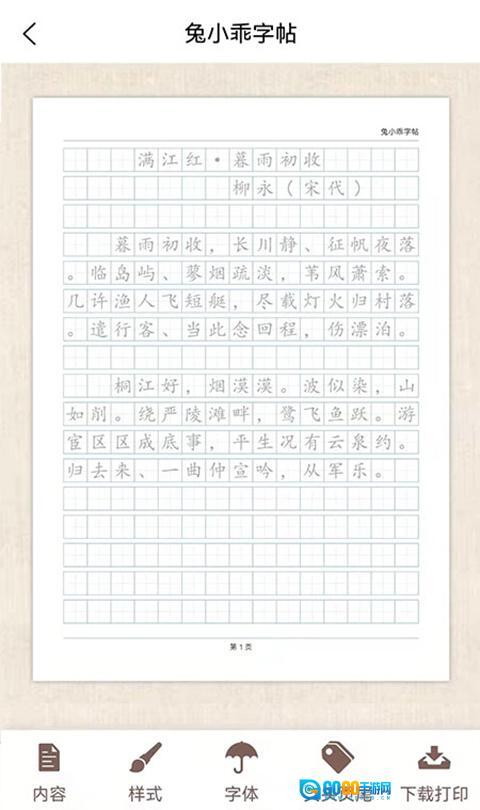 兔小乖字帖
兔小乖字帖
满江红·暮雨初收
柳永(宋代)
暮雨初收，长川静、征帆夜落
。临岛屿、蓼烟疏淡，苇风萧索。
几许渔人飞短艇，尽载灯火归村落
。遣行客、当此念回程，伤漂泊。
桐江好，烟漠漠。波似染，山
如削。绕严陵滩畔，鹭飞鱼跃。游
宦区区成底事，平生况有云泉约。
归去来、一曲仲宣吟，从军乐。
第1页
内容 样式 字体 下载打印
9080手游网